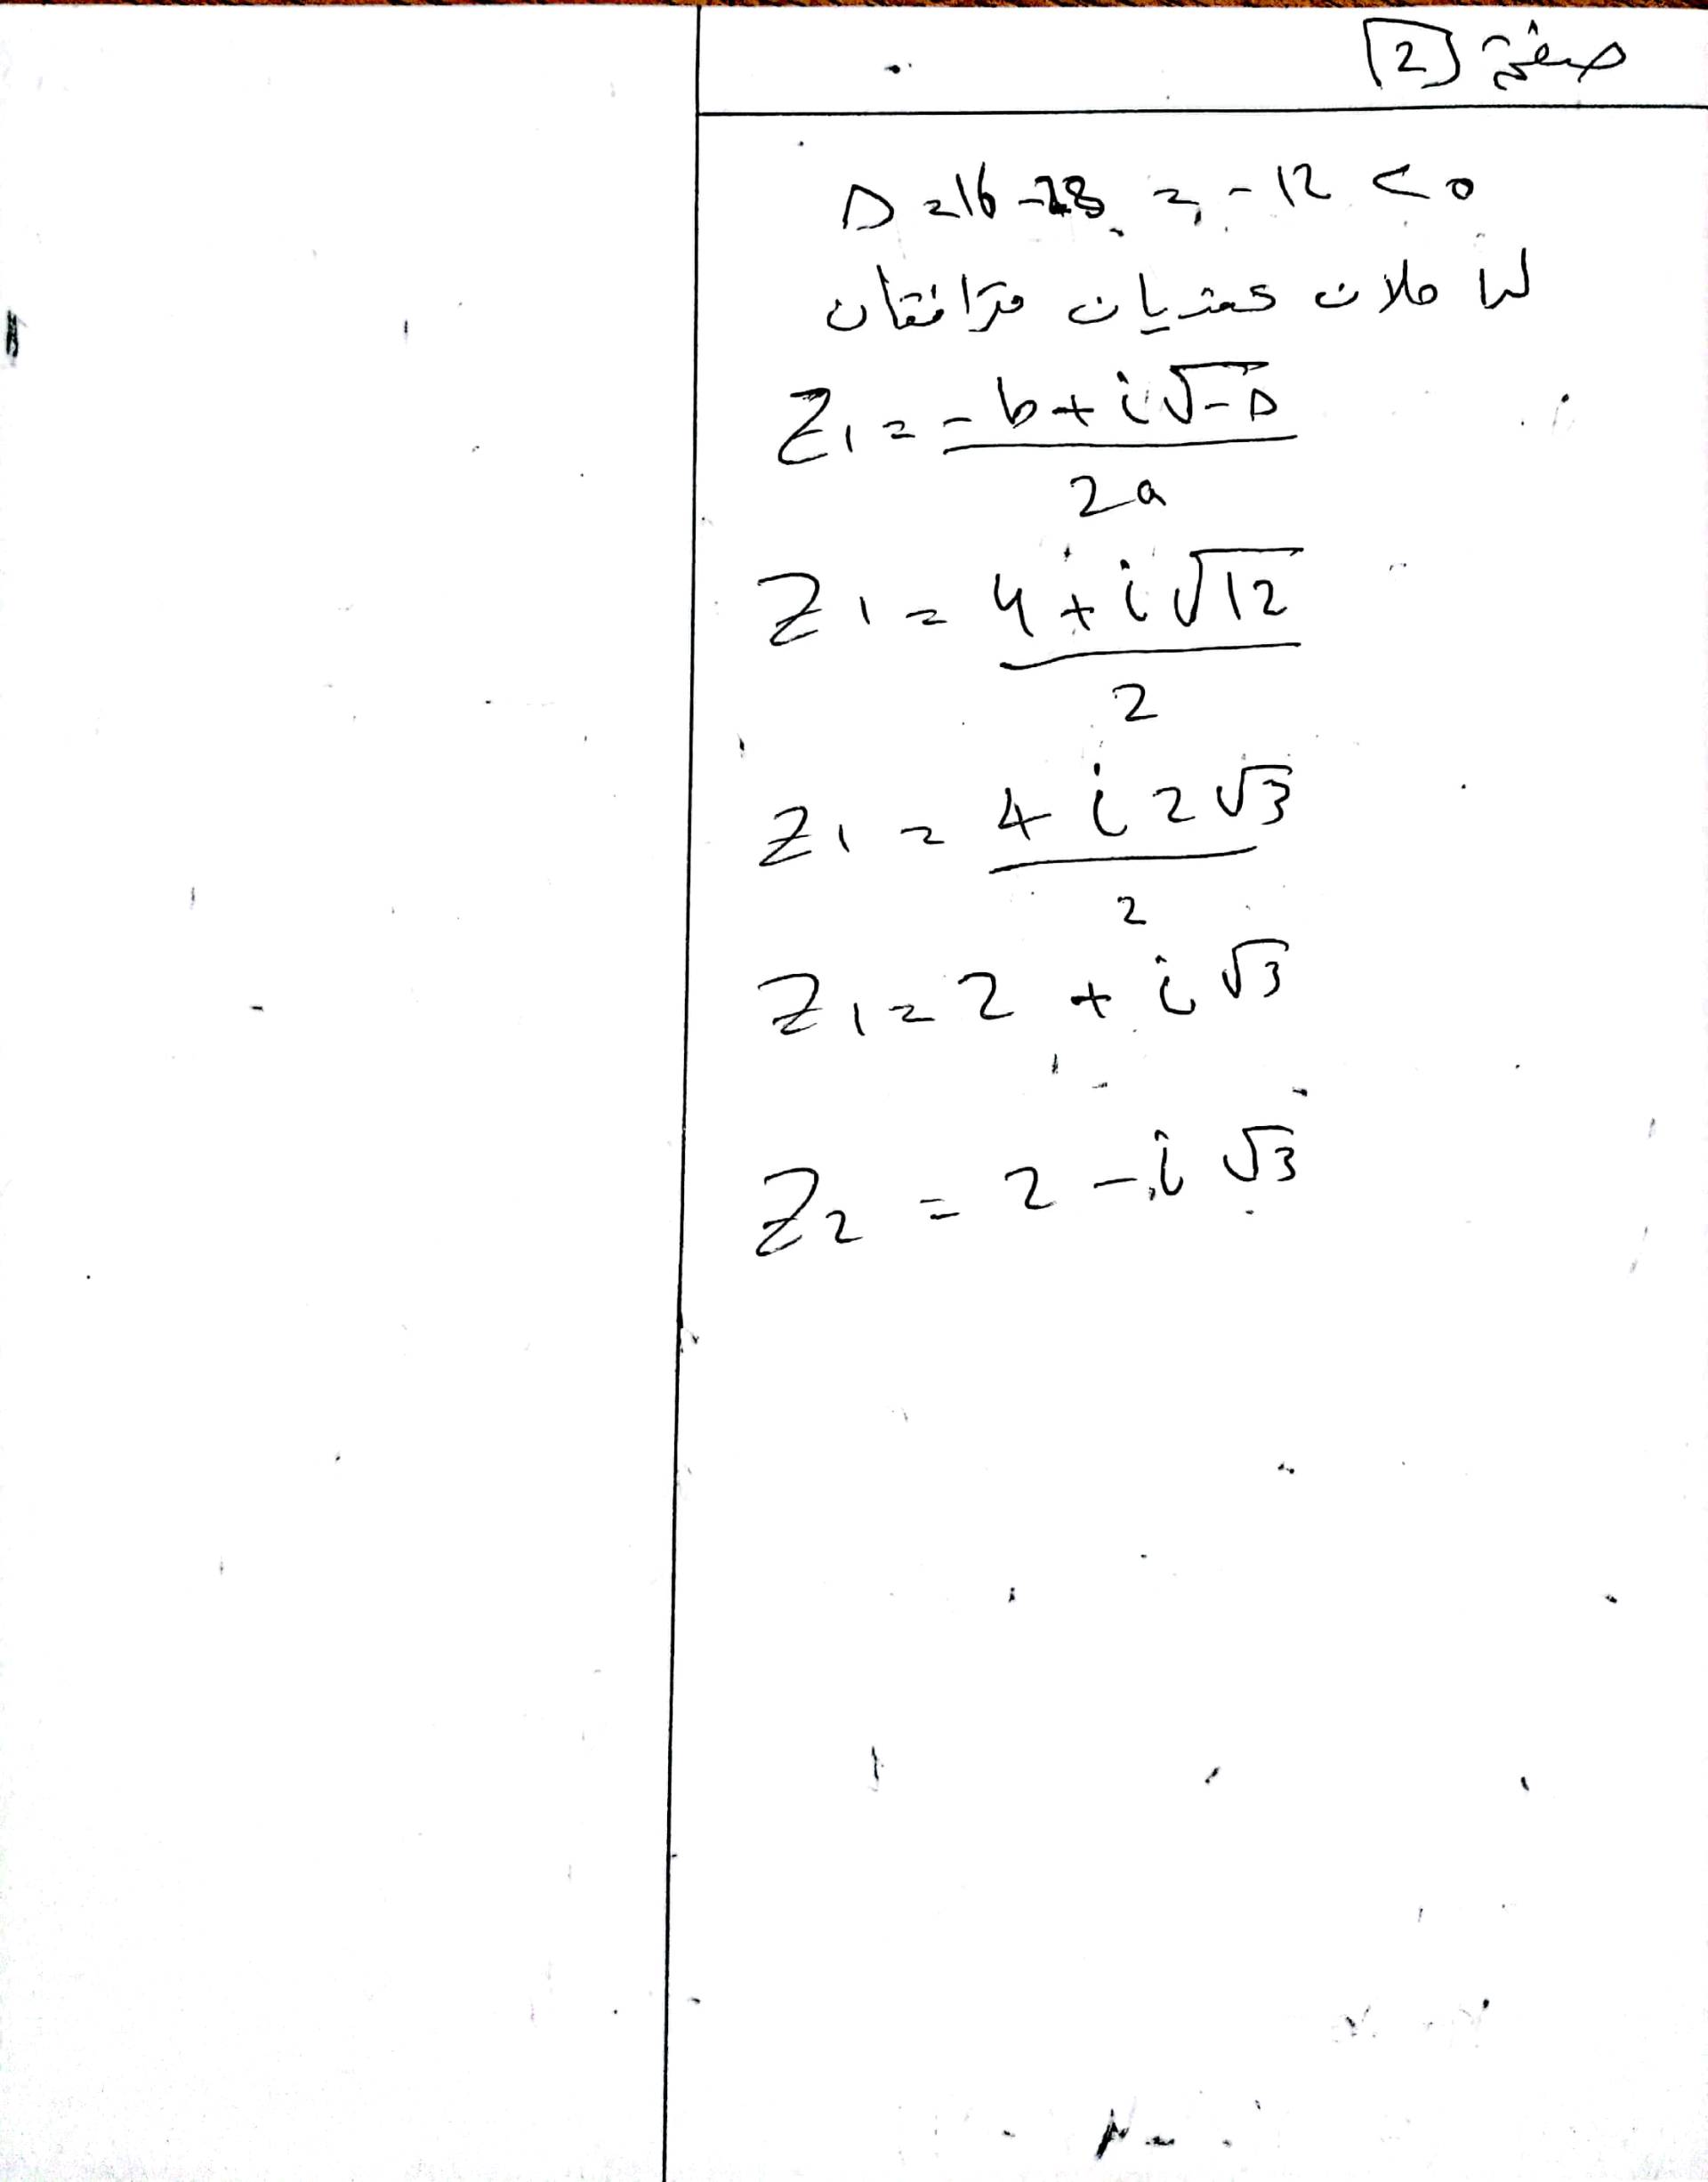 صفحة 2
Δ = 16 - 28 = - 12 < 0
لها حلان عقديان مترافقان
Z1 = - b + i √-Δ
2a
Z1 = 4 + i √12
2
Z1 = 4 i 2 √3
2
Z1 = 2 + i √3
Z2 = 2 - i √3